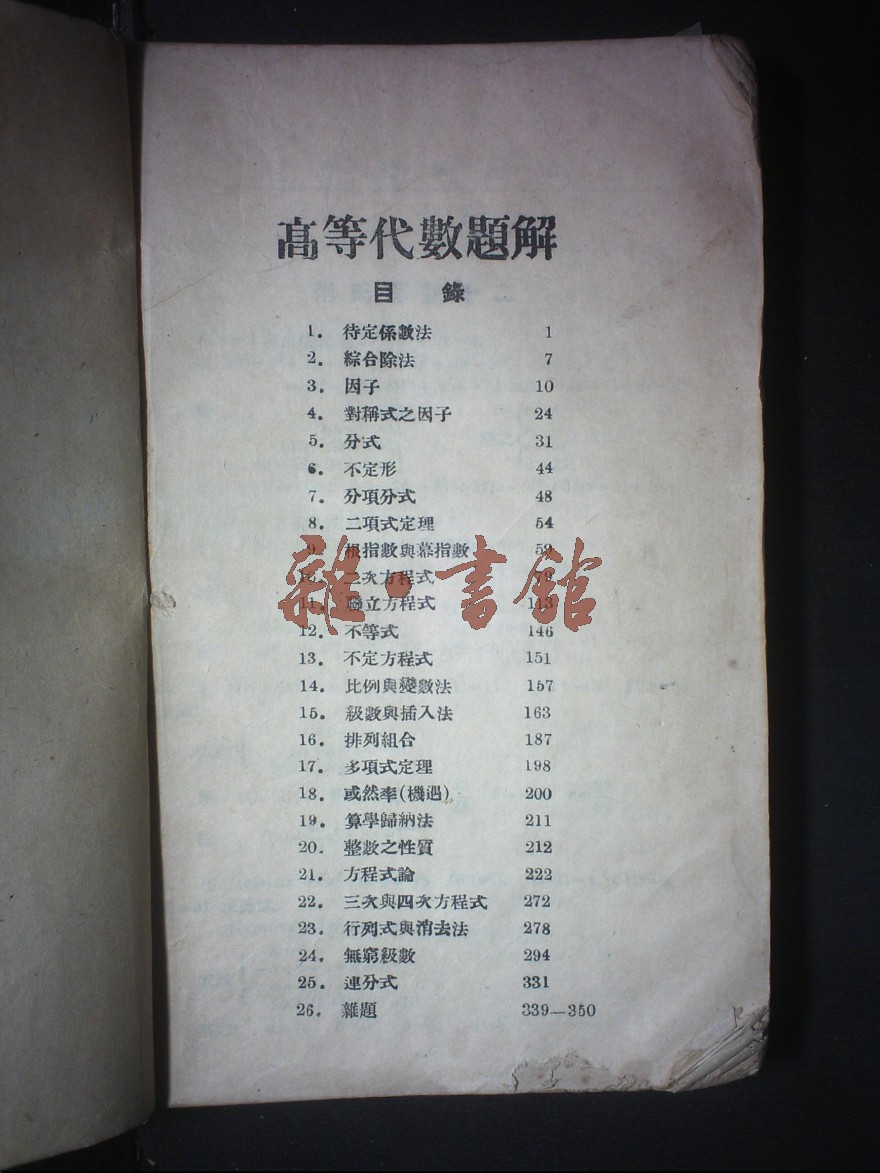 高等代數題解
目錄
1. 待定係數法 1
2. 綜合除法 7
3. 因子 10
4. 對稱式之因子 24
5. 分式 31
6. 不定形 44
7. 分項分式 48
8. 二項式定理 54
9. 根指數與冪指數 59
10. 二次方程式 79
11. 聯立方程式 113
雜·書館
12. 不等式 146
13. 不定方程式 151
14. 比例與變數法 157
15. 級數與插入法 163
16. 排列組合 187
17. 多項式定理 198
18. 或然率(機遇) 200
19. 算學歸納法 211
20. 整數之性質 212
21. 方程式論 222
22. 三次與四次方程式 272
23. 行列式與消去法 278
24. 無窮級數 294
25. 連分式 331
26. 雜題 339—350